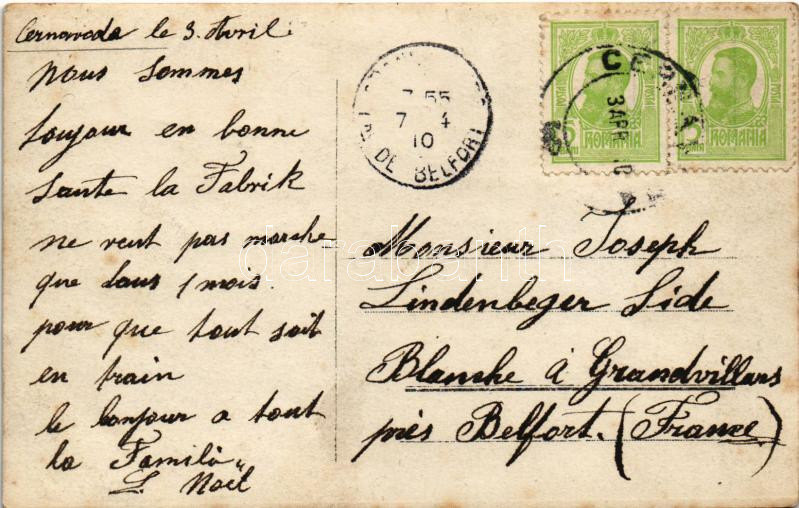 Cernavoda le 3. Avril
nous sommes
toujour en bonne
sante la Fabrik
ne veut pas marche
que dans 1 mois
pour que tout soit
en train
le bonjour a tout
la Famili
L. Noël
7 55
7 4
10
DE BELFORT
CERNA
3 APR 10
POSTA
ROMANIA
5
POSTA
ROMANIA
5
Monsieur Joseph
Lindenbeger Side
Blanche à Grandvillars
près Belfort. (France)
darabanth